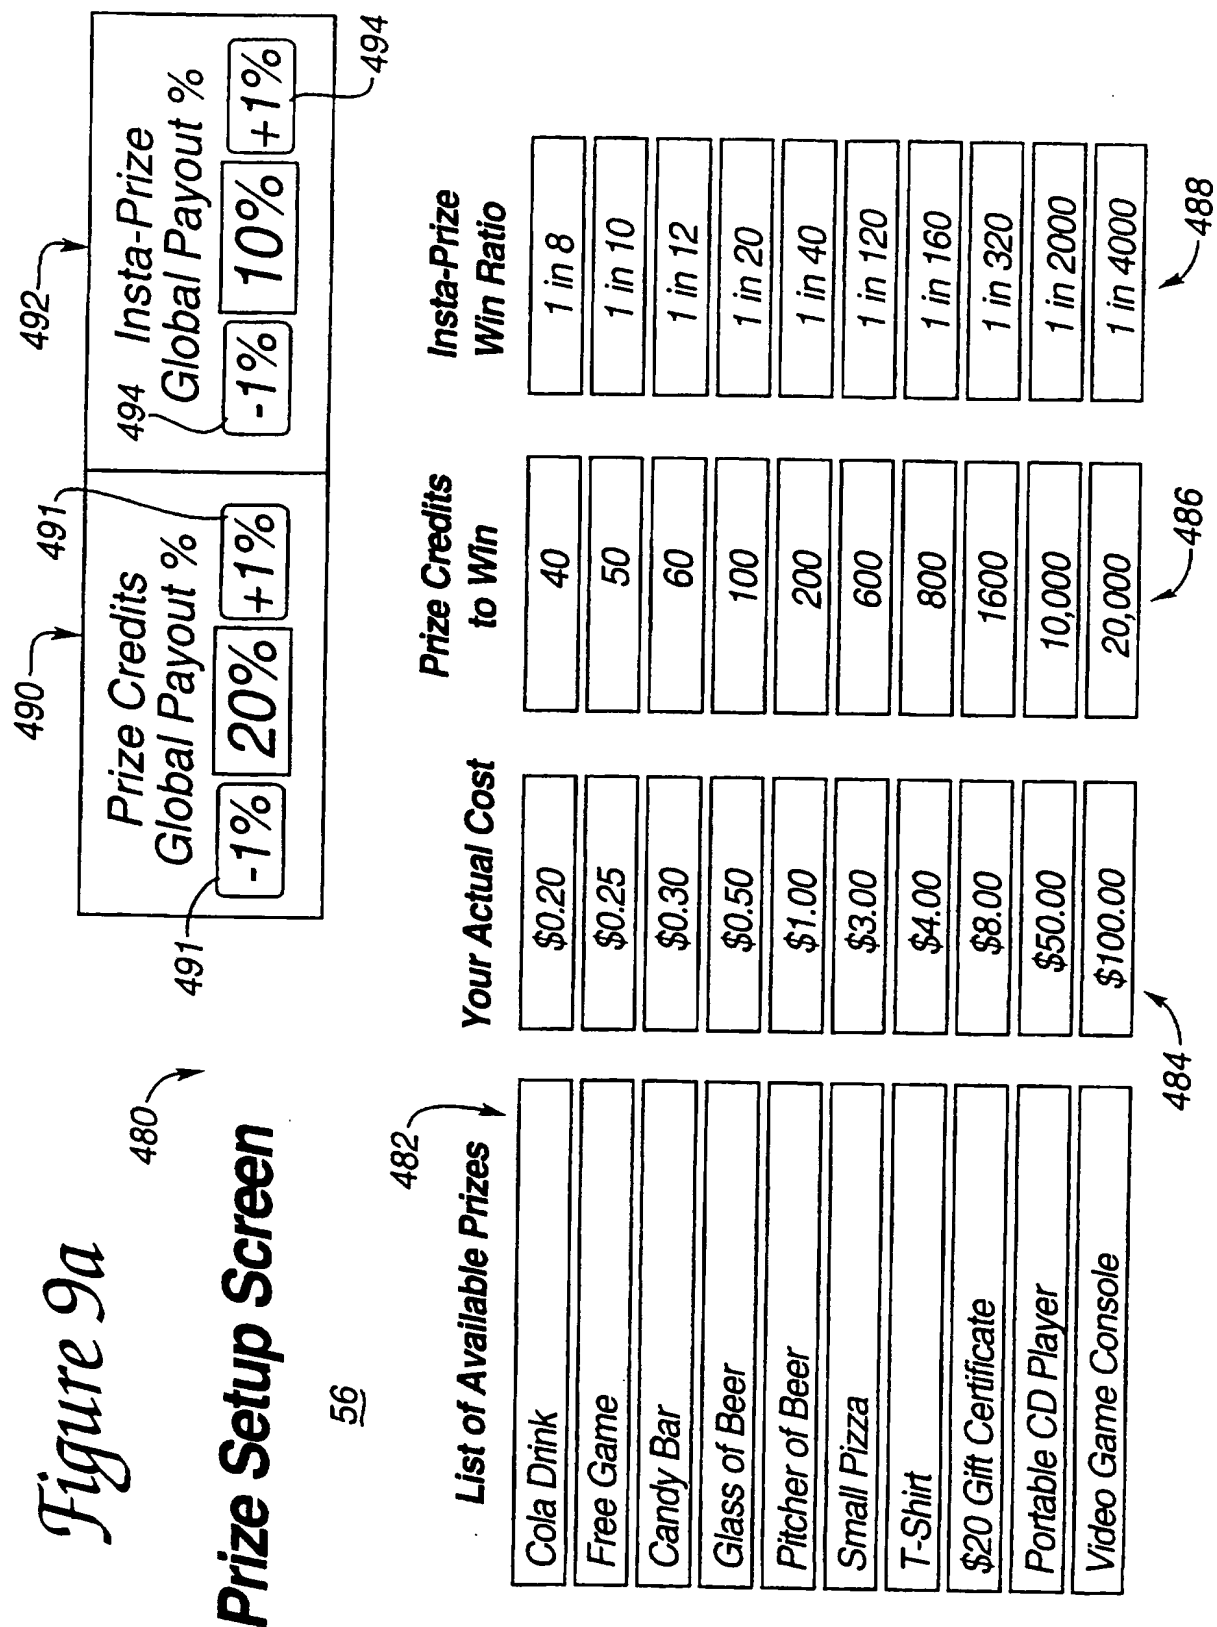 Figure 9a
480
Prize Setup Screen
56
490
492
Prize Credits
Global Payout %
-1% 20% +1%
491
491
Insta-Prize
Global Payout %
-1% 10% +1%
494
494
482
List of Available Prizes
Your Actual Cost
Prize Credits
to Win
Insta-Prize
Win Ratio
Cola Drink $0.20 40 1 in 8
Free Game $0.25 50 1 in 10
Candy Bar $0.30 60 1 in 12
Glass of Beer $0.50 100 1 in 20
Pitcher of Beer $1.00 200 1 in 40
Small Pizza $3.00 600 1 in 120
T-Shirt $4.00 800 1 in 160
$20 Gift Certificate $8.00 1600 1 in 320
Portable CD Player $50.00 10,000 1 in 2000
Video Game Console $100.00 20,000 1 in 4000
484
486
488